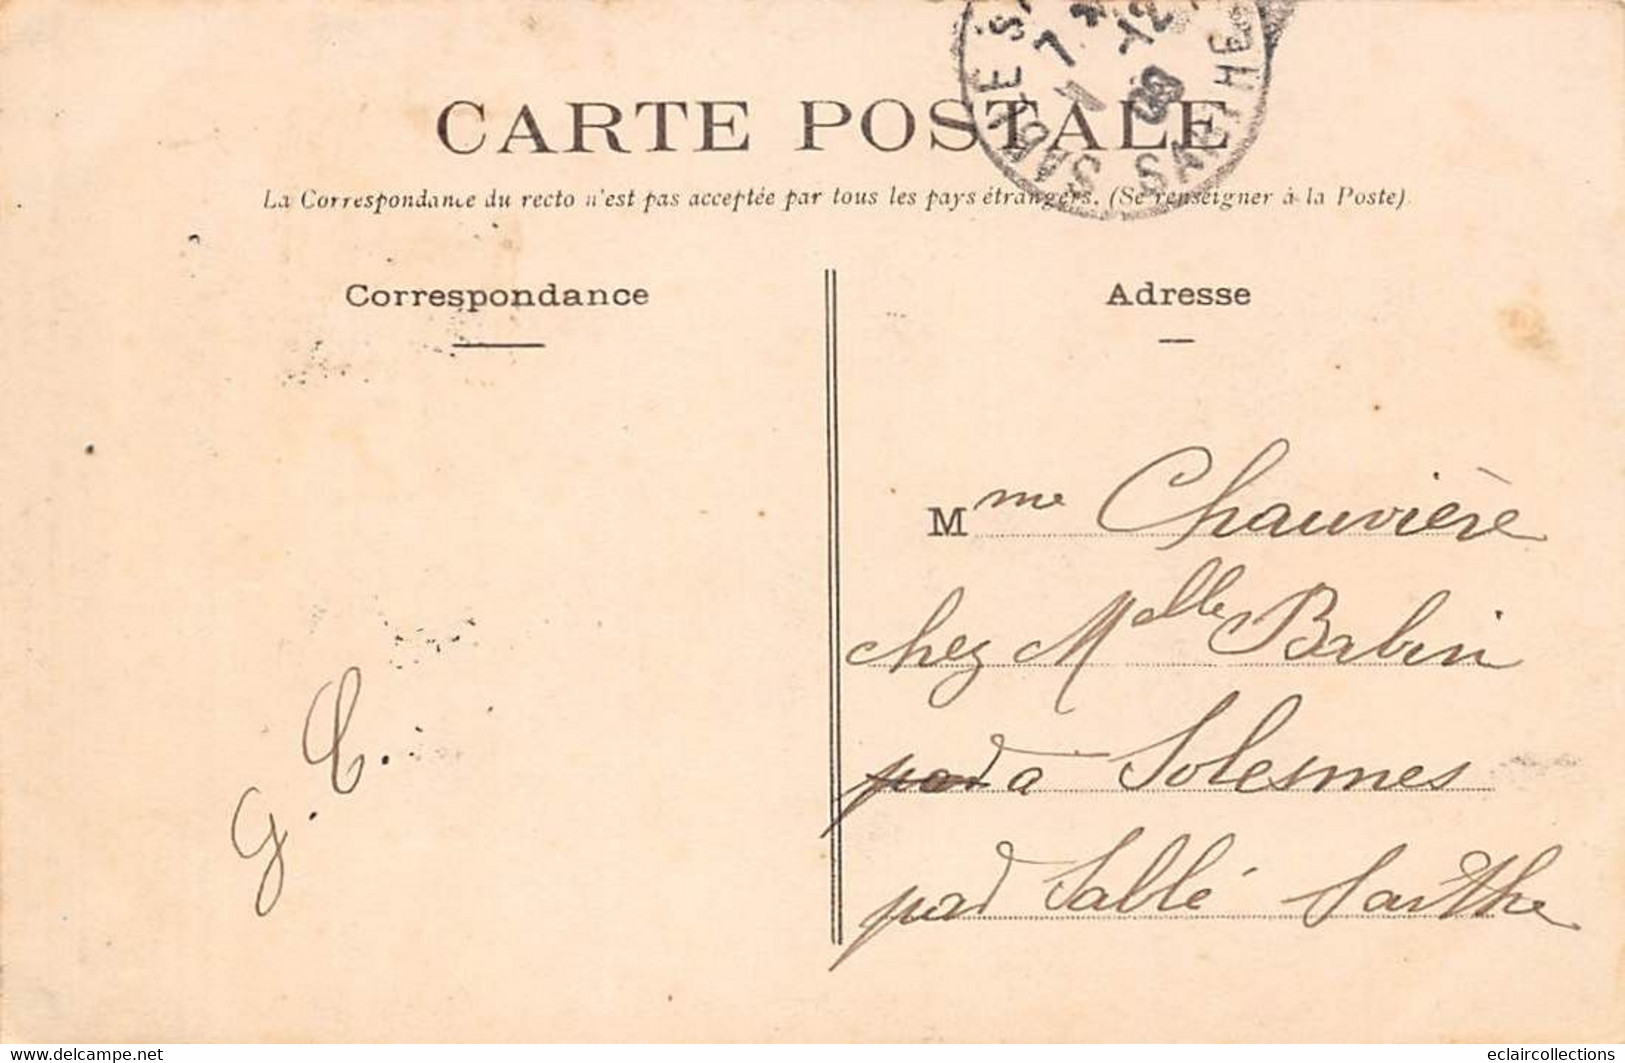 CARTE POSTALE
La Correspondance du recto n'est pas acceptée par tous les pays étrangers. (Se renseigner à la Poste)
SABLÉ S
SARTHE
Correspondance
Adresse
Mme Chauvière
chez Melle Babin
a Solesmes
par Sablé Sarthe
G. C.
www.delcampe.net
eclaircollections